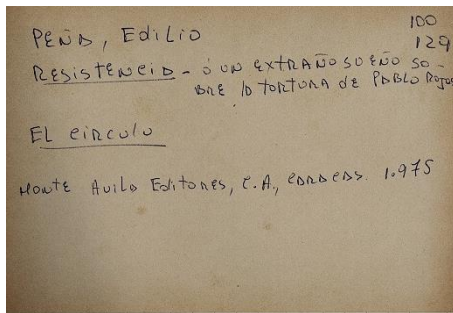 100
PEÑA, EdiLiO
129
RESiSTENCiA - Ó UN EXTRAÑO SUEÑO SO-
BRE lA TORTURA dE PABLO Rojas
EL CiRCulO
MONTE AVilA EdiTORES, C.A., CARACAS. 1.975